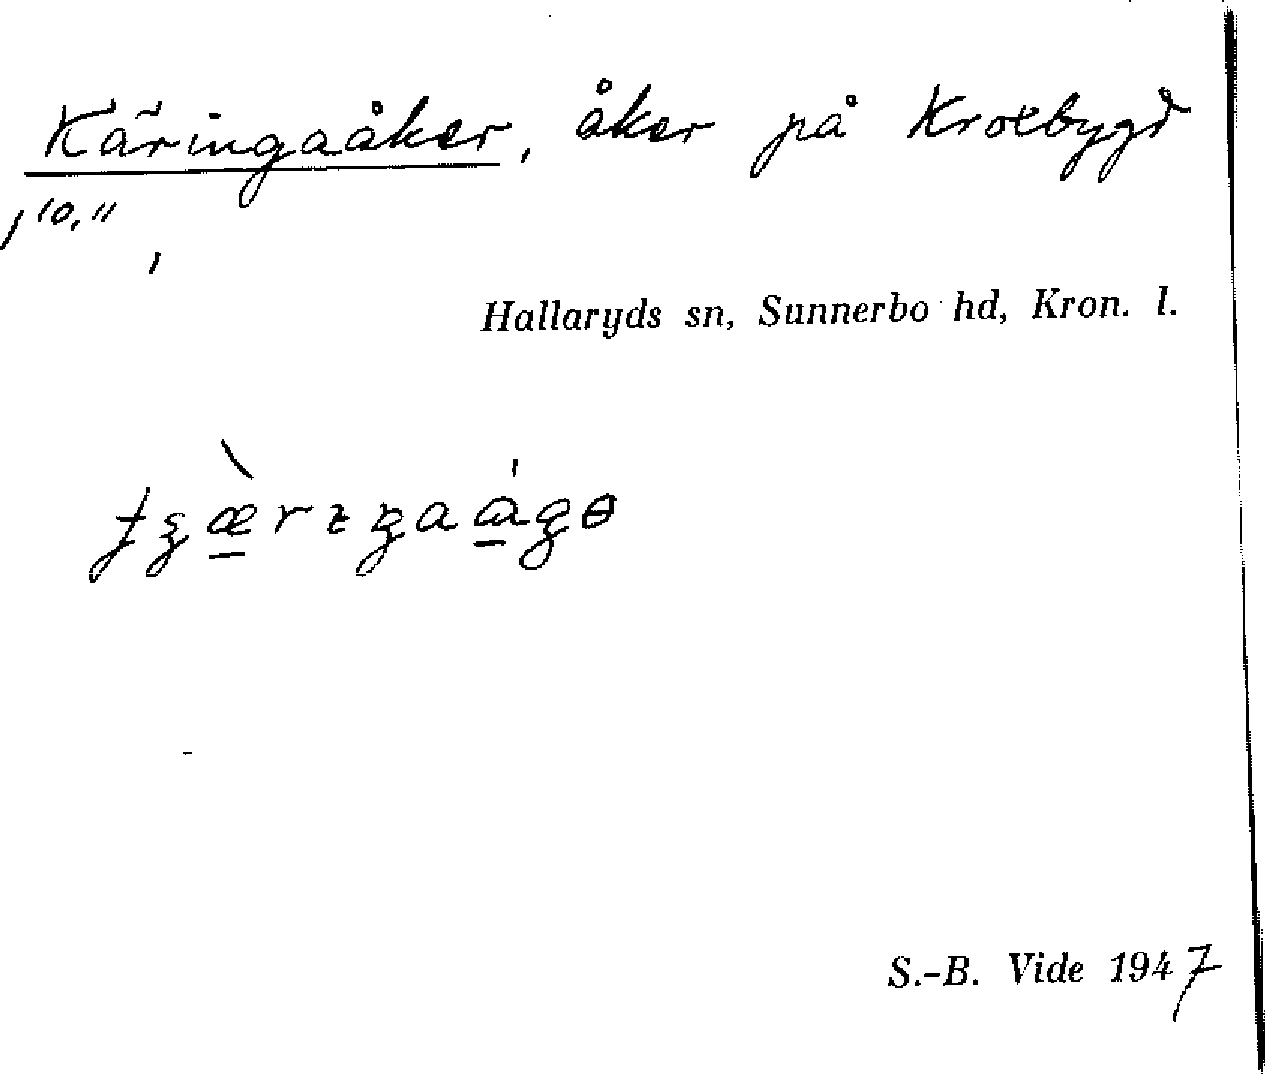 Käringaåker, åker på Kroxbygd
1 10, 11
Hallaryds sn, Sunnerbo hd, Kron. l.
S.-B. Vide 1947